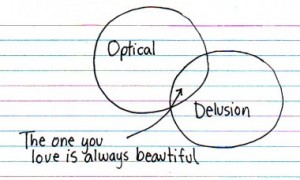 Optical
Delusion
The one you
love is always beautiful